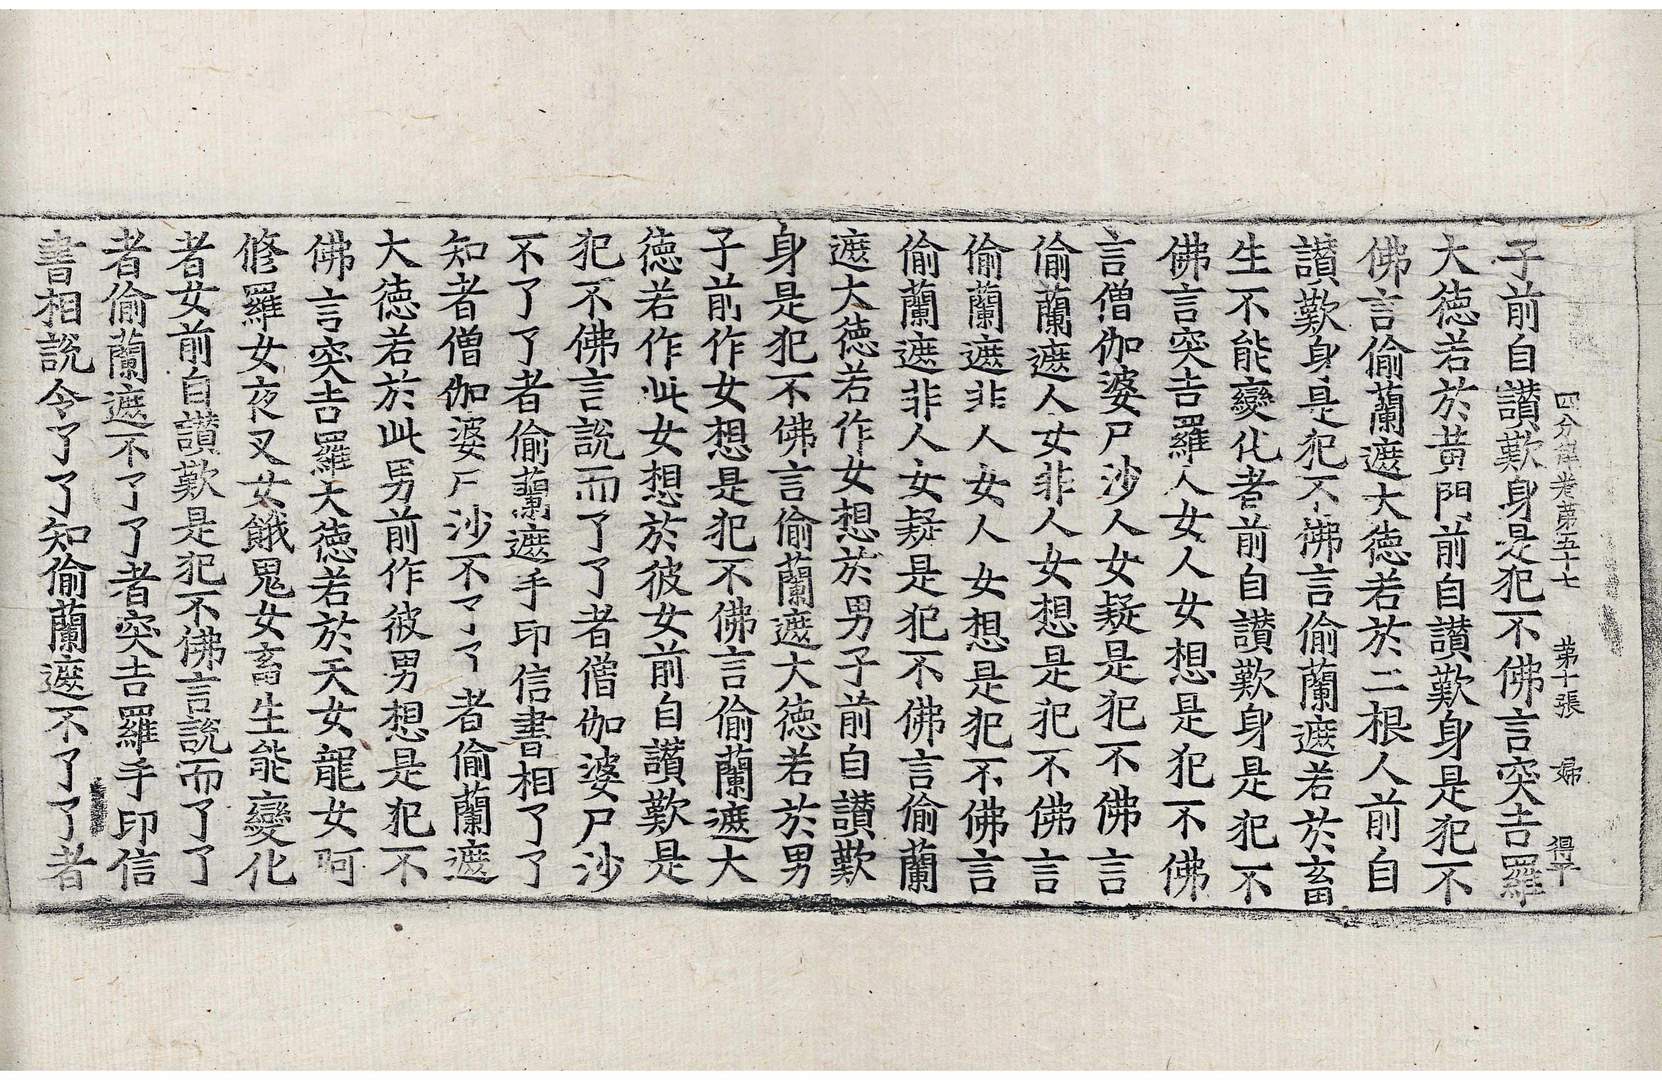 四分律卷第五十七 第十張 婦 得平
子前自讃歎身是犯不佛言突吉羅
大德若於黃門前自讃歎身是犯不
佛言偷蘭遮大德若於二根人前自
讃歎身是犯不佛言偷蘭遮若於畜
生不能變化者前自讃歎身是犯不
佛言突吉羅人女人女想是犯不佛
言僧伽婆尸沙人女疑是犯不佛言
偷蘭遮人女非人女想是犯不佛言
偷蘭遮非人女人女想是犯不佛言
偷蘭遮非人女疑是犯不佛言偷蘭
遮大德若作女想於男子前自讃歎
身是犯不佛言偷蘭遮大德若於男
子前作女想是犯不佛言偷蘭遮大
德若作此女想於彼女前自讃歎是
犯不佛言說而了了者僧伽婆尸沙
不了了者偷蘭遮手印信書相了了
知者僧伽婆尸沙不了了者偷蘭遮
大德若於此男前作彼男想是犯不
佛言突吉羅大德若於天女龍女阿
修羅女夜叉女餓鬼女畜生能變化
者女前自讃歎是犯不佛言說而了了
者偷蘭遮不了了者突吉羅手印信
書相說令了了知偷蘭遮不了了者